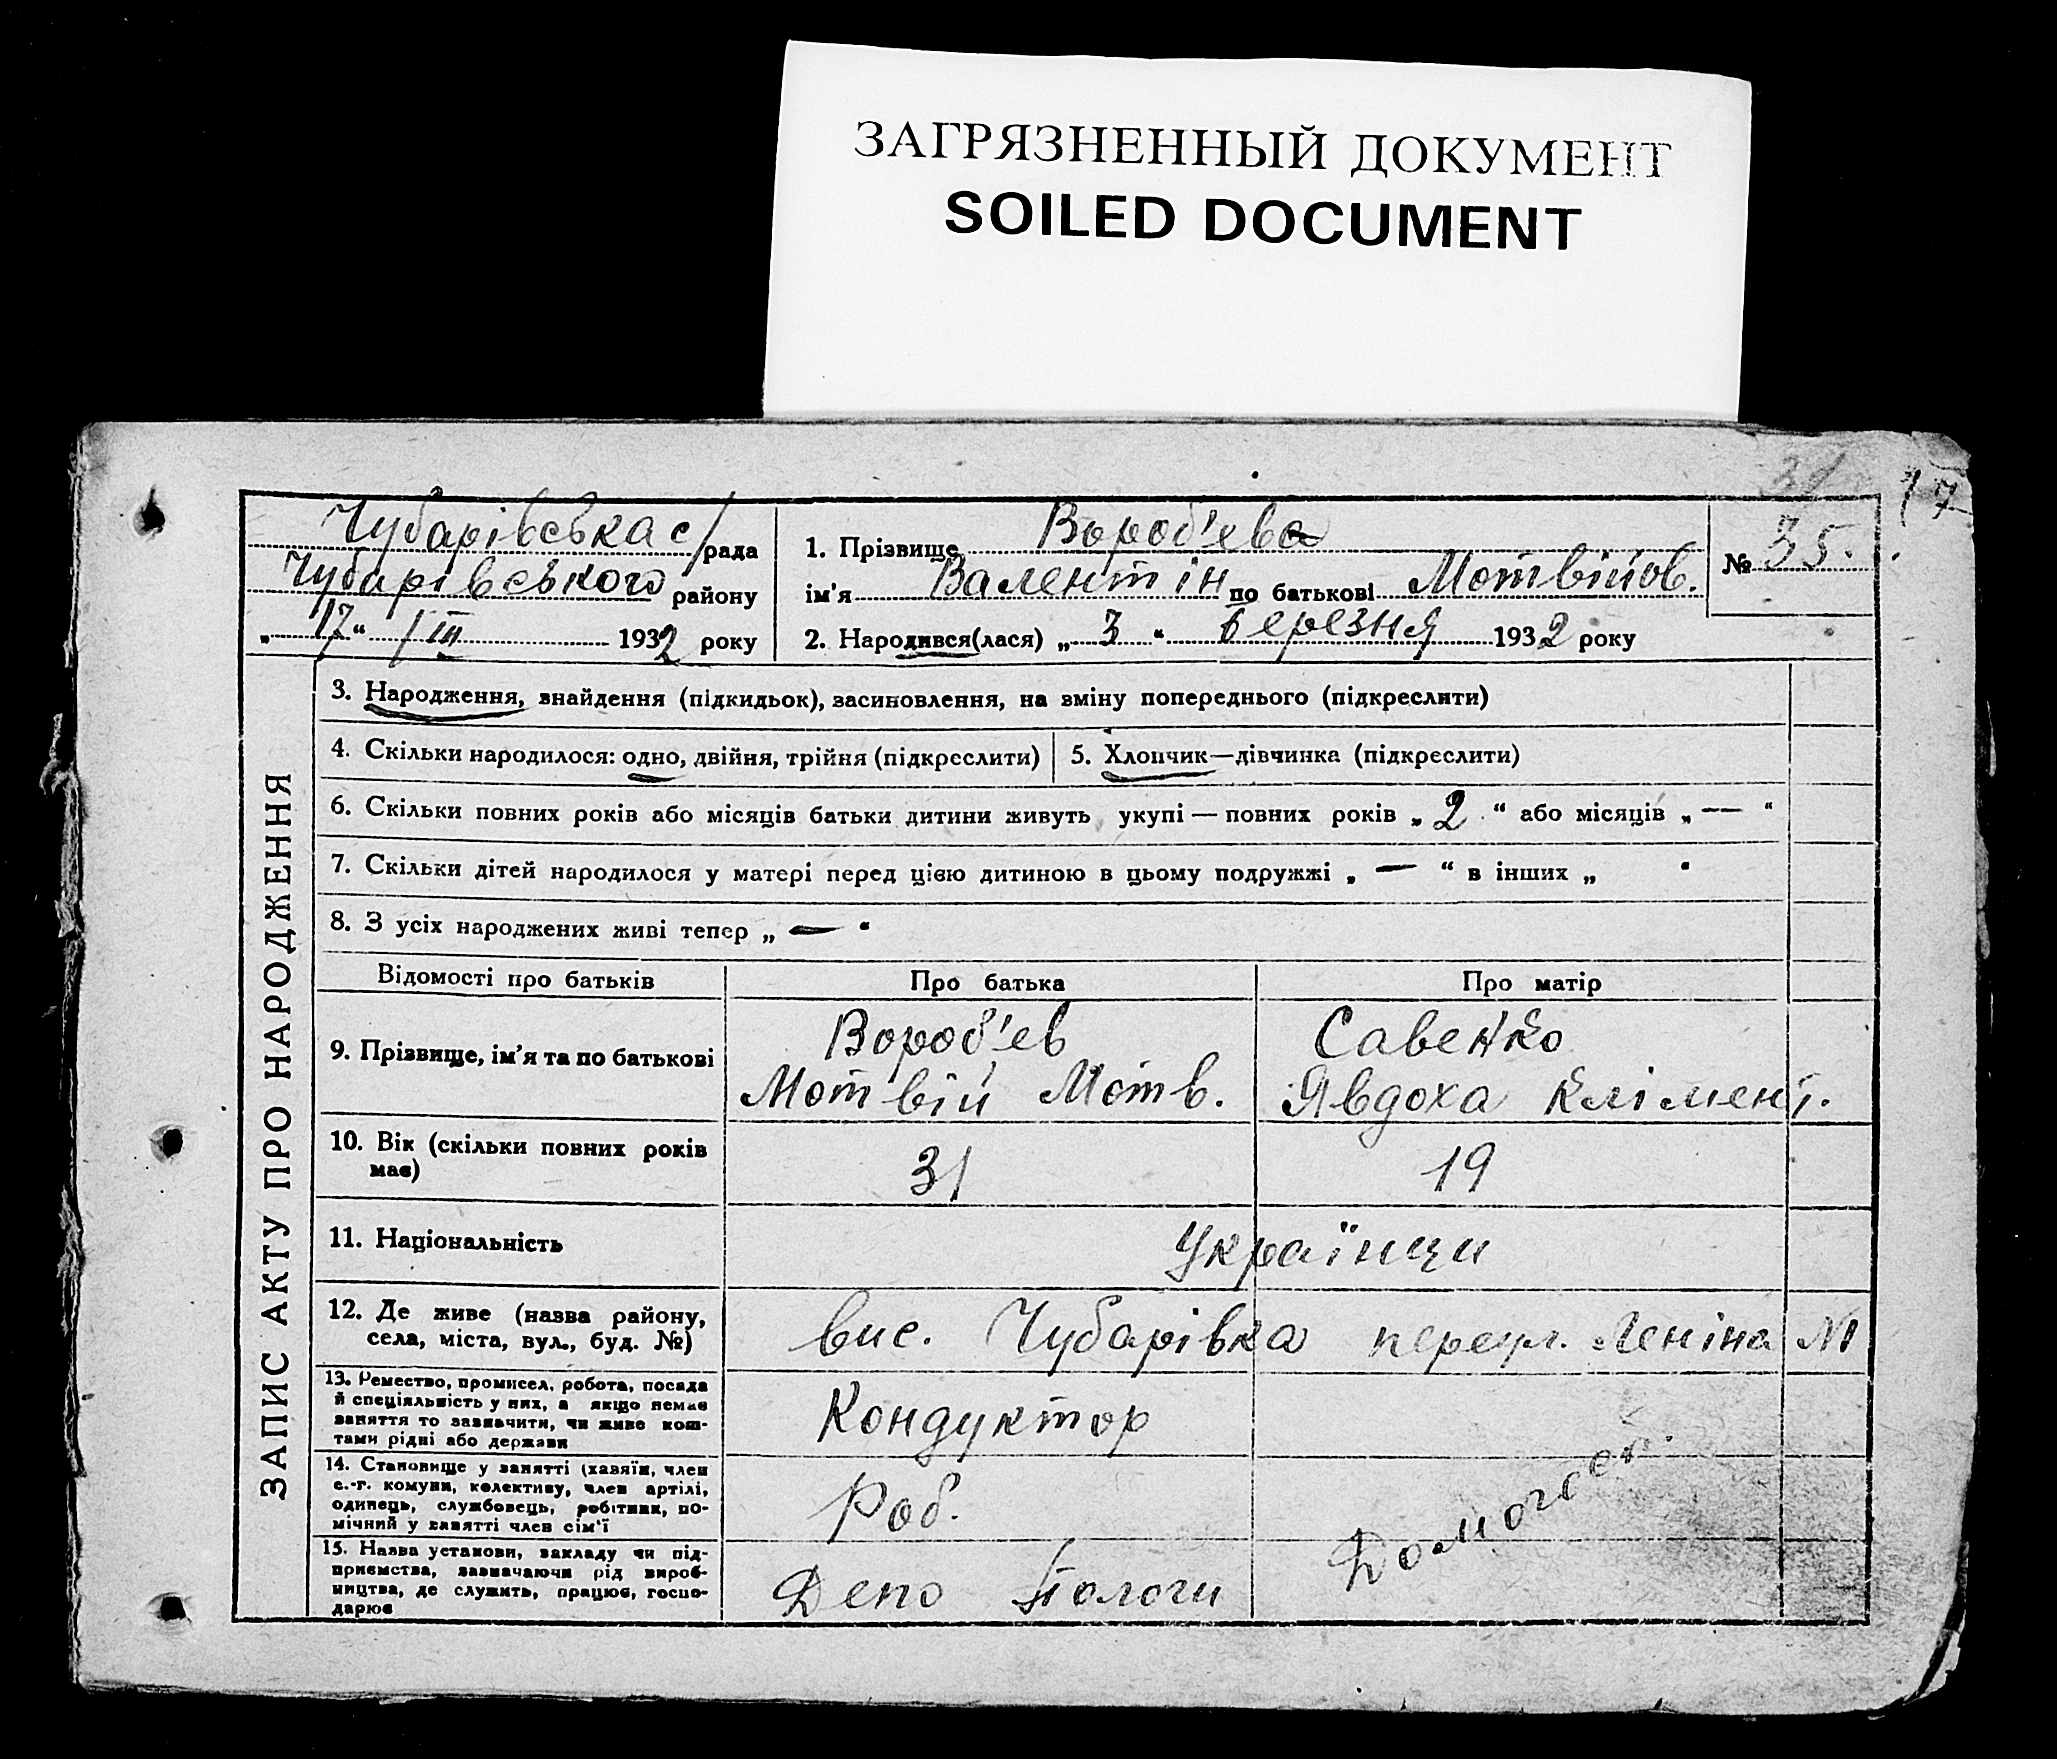 ЗАГРЯЗНЕННЫЙ ДОКУМЕНТ
SOILED DOCUMENT
17
Чубарівська с/рада
Чубарівського району
„17“ / III 1932 року
1. Прізвище Вороб'ева
ім'я Валентін по батькові Мотвійов.
№ 35.
2. Народився(лася) „3“ березня 1932 року
ЗАПИС АКТУ ПРО НАРОДЖЕННЯ
3. Народження, знайдення (підкидьок), засиновлення, на зміну попереднього (підкреслити)
4. Скільки народилося: одно, двійня, трійня (підкреслити)
5. Хлопчик—дівчинка (підкреслити)
6. Скільки повних років або місяців батьки дитини живуть укупі — повних років „2“ або місяців „—“
7. Скільки дітей народилося у матері перед цією дитиною в цьому подружжі „—“ в інших „ “
8. З усіх народжених живі тепер „—“
Відомості про батьків
Про батька
Про матір
9. Прізвище, ім'я та по батькові
Вороб'ев
Мотвій Мотв.
Савенко
Явдоха Клімент.
10. Вік (скільки повних років
має)
31
19
11. Національність
Українци
12. Де живе (назва району,
села, міста, вул., буд. №)
вис. Чубарівка переул. Леніна №1
13. Ремество, промисел, робота, посада
й спеціяльність у них, а якщо немає
заняття то зазначити, чи живе кош-
тами рідні або держави
Кондуктор
14. Становище у занятті (хазяїн, член
с.-г. комуни, колективу, член артілі,
одинець, службовець, робітник, по-
мічний у занятті член сім'ї
Роб.
15. Назва установи, закладу чи під-
приємства, зазначаючи рід вироб-
ництва, де служить, працює, госпо-
дарює
Депо Пологи